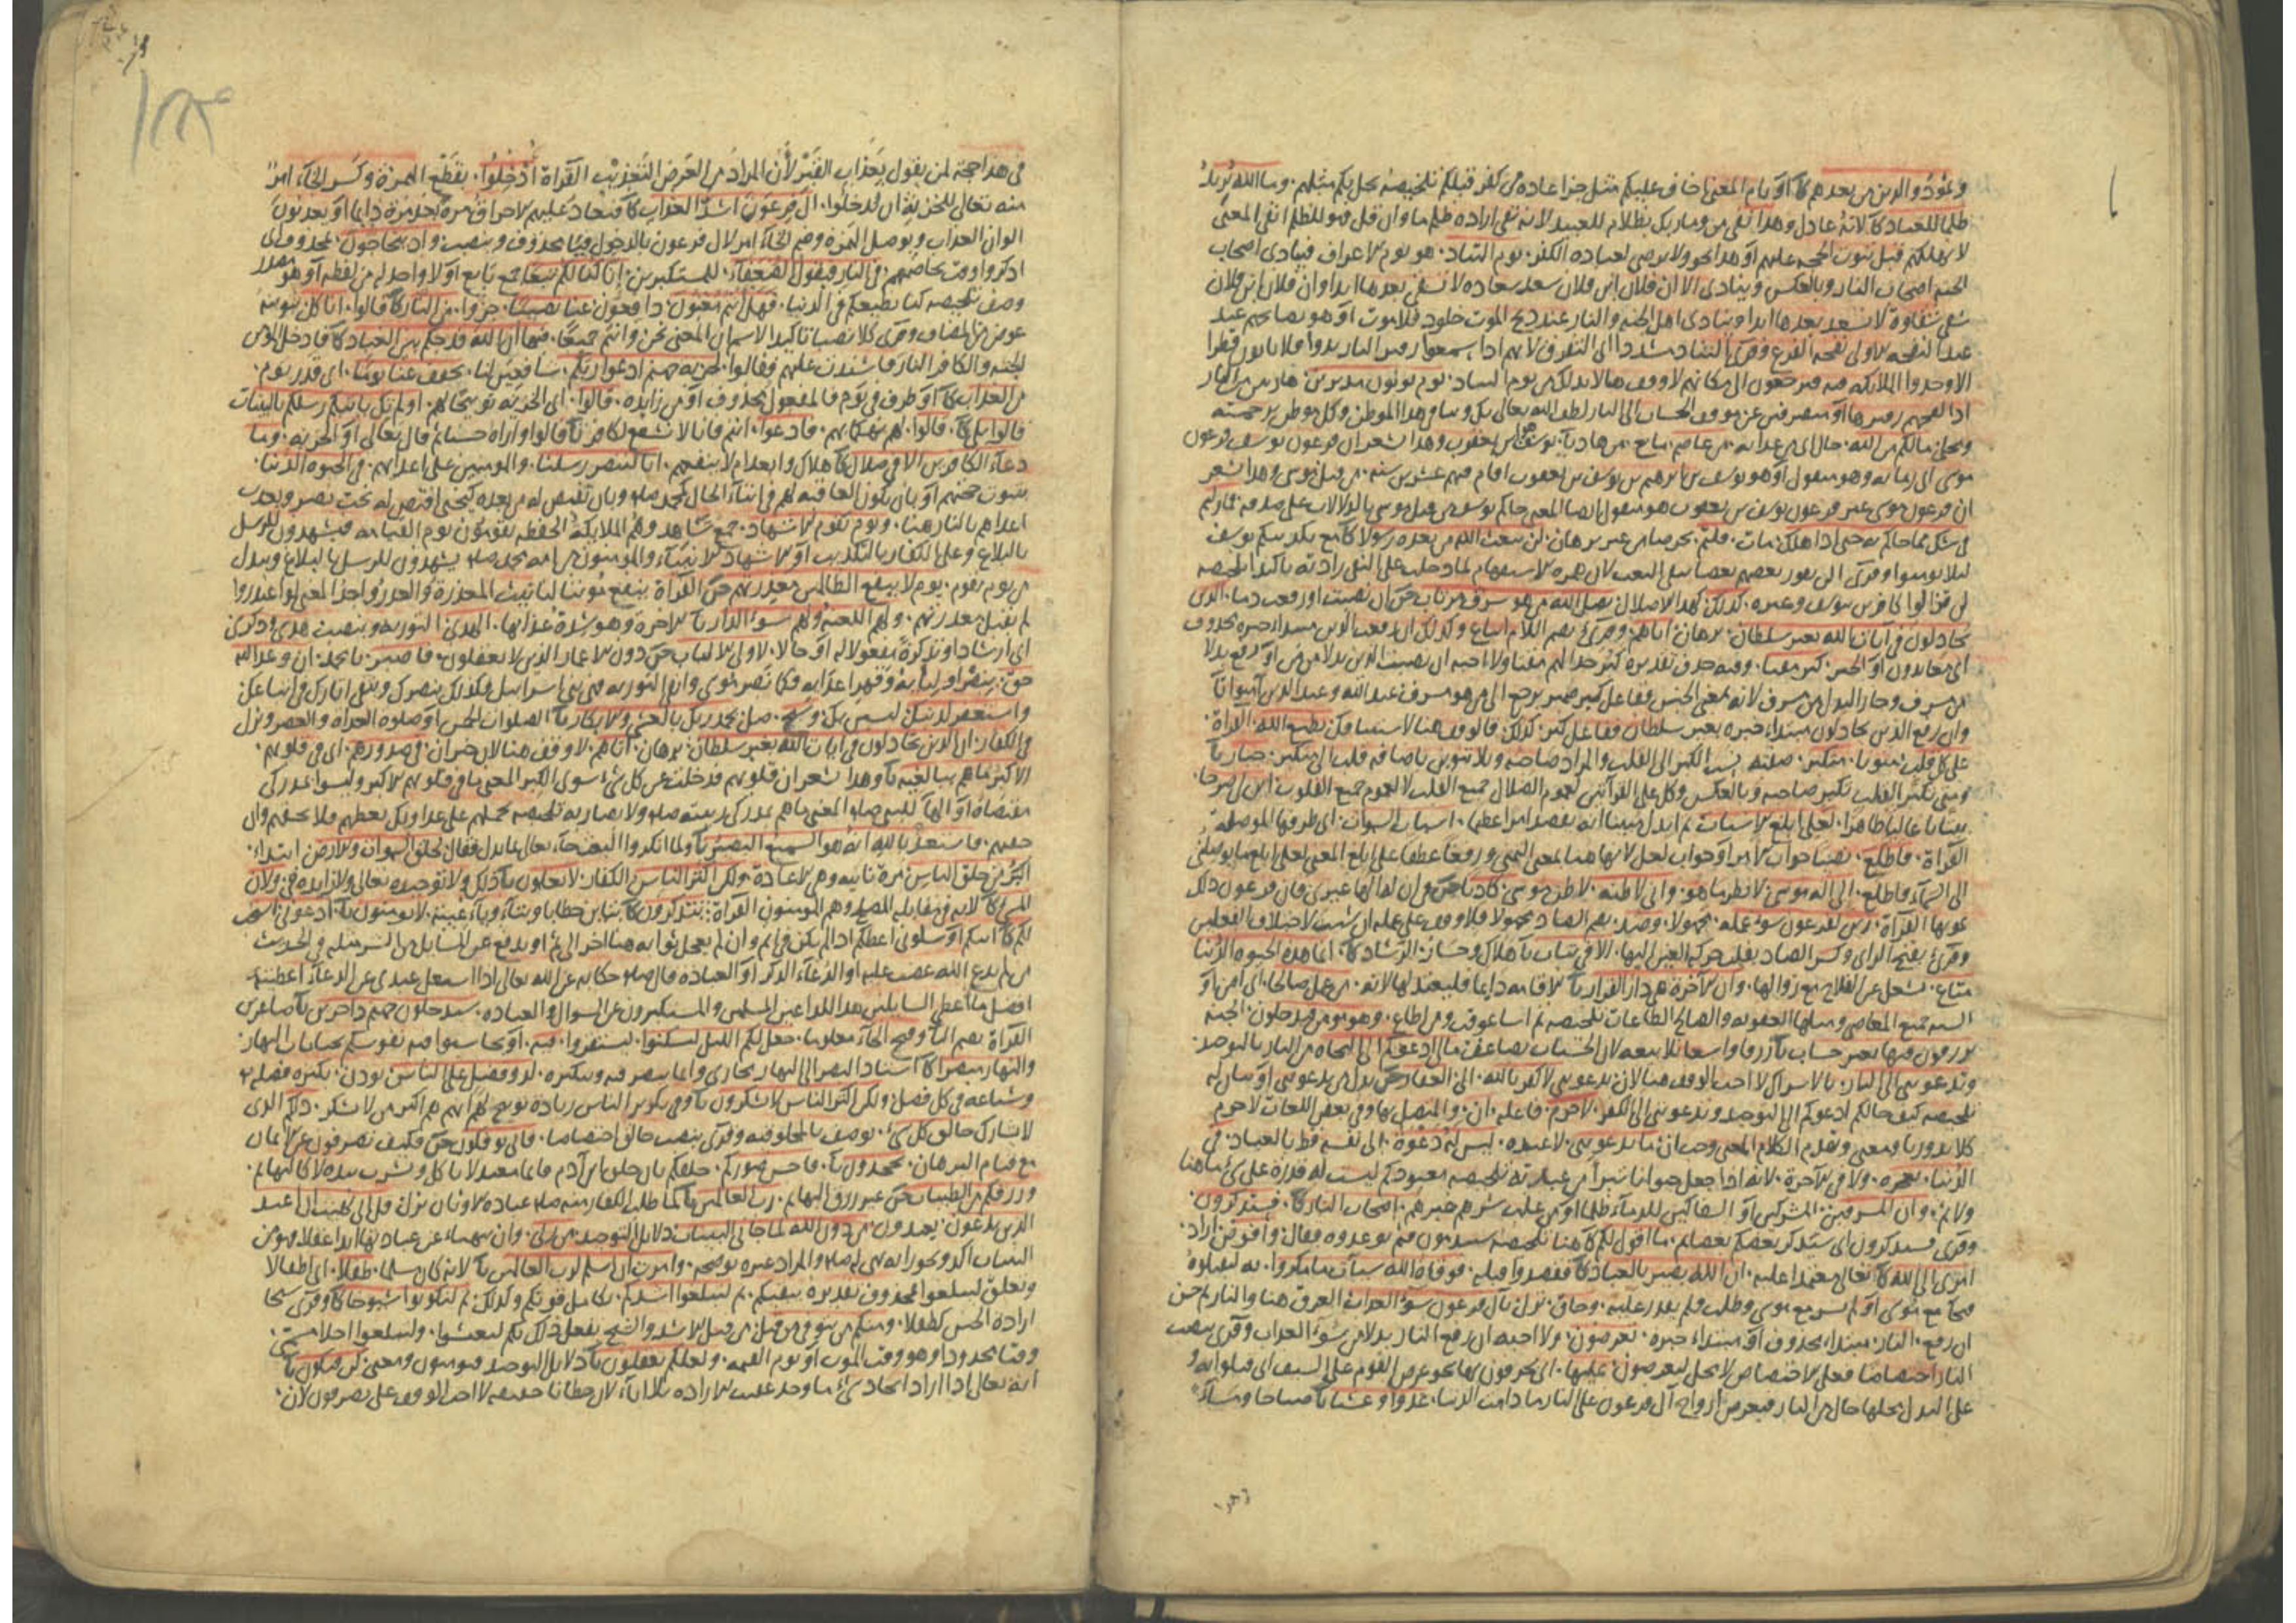 وثمود والذين من بعدهم كا او يام المعنى اخاف عليكم مثل جزا عادة من كفر قبلكم تلخيصه يحل بكم مثلهم وما الله يريد
ظلما للعباد كا لانه عادل وهذا نفى من وما ربك بظلام للعبيد لانه نفى ارادة ظلم ما وان قل فهو للظلم انفى المعنى
لا يهلكهم قبل ثبوت الحجة عليهم او هذا نحو ولا يرضى لعباده الكفر يوم التناد هو يوم الاعراف فينادى اصحاب
الجنة اصحاب النار وبالعكس وينادى الا ان فلان ابن فلان سعد سعادة لا يشقى بعدها ابدا وان فلان ابن فلان
شقى شقاوة لا يسعد بعدها ابدا وينادى اهل الجنة والنار عند ذبح الموت خلود فلا موت او هو يصايحهم عند
عند النفخة الاولى نفخة الفزع وقرئ التناد مشددا اى التفرق لانهم اذا سمعوا زفير النار ندوا فلا ياتون قطرا
الا وجدوا الملائكة فيه فيرجعون الى مكانهم لا وقف هنا لابدلك من يوم التناد يوم تولون مدبرين هاربين من النار
اذا لفحهم زفيرها او منصرفين عن موقف الحساب الى النار لطف الله تعالى بكل وبنا فى هذا الموطن وكل موطن برحمته
مالكم من الله حال اى من عذابه من عاصم مانع من هاد يا يوسف هو ابن يعقوب وهذا يشعر ان فرعون يوسف فرعون
موسى الى زمانه وهو منقول او هو يوسف بن ابرهيم بن يوسف بن يعقوب اقام فيهم عشرين سنة من قبل موسى وهذا يشعر
ان فرعون موسى غير فرعون يوسف بن يعقوب هو منقول ايضا المعنى جاكم يوسف من قبل موسى بالدلالات على صدقه فما زلتم
فى شك مما جاكم به حتى اذا هلك مات قلتم من غير برهان لن يبعث الله من بعده رسولا كا مع بكذيبكم يوسف
لئلا تؤمنوا وقرئ الن يقرر بعضهم بعضا بنفى البعث لان همزة الاستفهام لما دخلت على النفى زادته تاكيدا تلخيصه
لن تزالوا كافرين بيوسف وغيره كذلك كهذا الاضلال يضل الله من هو مسرف مرتاب حسن ان نصبت او رفعت ذما الذين
يجادلون فى آيات الله بغير سلطان برهان اتاهم وقرئ بضم اللام اتباع وكذلك ان رفعت الذين مبتدا خبره محذوف
اى معاندون او الخبر كبر مقتا وفيه حذف تقديره كبر جدالهم مقتا ولا احبه ان نصبت الذين بدلا من من او رفع بدلا
من مسرف وجاز البدل من مسرف لانه بمعنى الجنس وفاعل كبر ضمير يرجع الى من هو مسرف عند الله وعند الذين آمنوا تا
وان رفع الذين يجادلون مبتداء خبره بغير سلطان ففاعل كبر كذلك قالوقف هنا لاستينافك يطبع الله القراة
على كل قلب منونا متكبر صفته نسب الكبر الى القلب والمراد صاحبه وبلا تنوين باضافة قلب الى متكبر جبار يا
ومتى تكبر القلب تكبر صاحبه وبالعكس وكل على القراتين لعموم الضلال جميع القلب لا لعموم جميع القلوب ابن لى صرحا
بيتا عاليا ظاهرا لعلى ابلغ الاسباب ثم ابدل مبينا انه يقصد امرا عظيما اسباب السموات اى طرقها الموصلة
القراة فاطلع نصبا جواب الامر او جواب لعل لانها هنا بمعنى التمنى ورفعا عطفا على ابلغ المعنى لعلى ابلغ ما يوصلنى
الى السماء فاطلع الى اله موسى لانظر ما هو وانى لاظنه لاظن موسى كاذبا حسن فى ان لها الها غيرى فان فرعون ذلك
تمويها القراة زين لفرعون سوء عمله مجهولا وصد بضم الصاد مجهولا فلا وقف على عمله ان شئت لاختلاف الفعلين
وقرئ بفتح الزاى وكسر الصاد بنقل حركة العين اليها الا فى تباب يا هلاك وخسار الرشاد كا انما هذه الحيوة الدنيا
متاع يشغل عن الفلاح مع زوالها وان الاخرة هى دار القرار يا لاقامة دايما فليعتد لها لانه من عمل صالحا اى آمن او
السيئة جميع المعاصى ومثلها العقوبة والصالح الطاعات تلخيصه من اسا عوقب ومن اطاع وهو مومن فيدخلون الجنة
يرزقون فيها بغير حساب يا رزقا واسعا بلا تبعة لان الحسنات تضاعف مالى ادعوكم الى النجاة من النار بالتوحيد
وتدعوننى الى النار بالاشراك لا احب الوقف هنا لان تدعوننى لاكفر بالله الى الغفار حسن بدل من تدعوننى او بيان له
تلخيصه كيف حالكم ادعوكم الى التوحيد وتدعوننى الى الكفر لا جرم فاعله ان والمتصل بها وفى بعض اللغات لا جرم
كلا بدور يا ومعنى وتقدم الكلام المعنى وجب ان ما تدعوننى لاعبده ليس له دعوة الى نفسه قط بالعباد فى
الدنيا بغيره ولا فى الاخرة لانه اذا جعل حيوانا تبرأ من عبادته تلخيصه معبودكم ليست له قدرة على شئ ما هنا
ولا ثم وان المسرفين المشركين او السفاكين للدماء ظلما او من غلب شرهم خيرهم اصحاب النار كا فستذكرون
وقرئ فستذكرون اى سيذكر بعضكم بعضا ثم ما اقول لكم كا هنا تلخيصه ستندمون فثم توعدوه فقال وافوض ارد
امرى الى الله كا تعالى معتمدا عليه ان الله بصير بالعباد كا فقصدوا قتله فوقاه الله سيآت ما مكروا به ليقتلوه
فنجا مع موسى او لم يسر مع موسى وطلب فلم يقدر عليه وحاق نزل بآل فرعون سوء العذاب الغرق هنا والنار ثم حسن
ان رفع النار مبتدا محذوف او مبتداء خبره يعرضون ولا احبه ان رفع النار بدلا من سوء العذاب وقرئ بنصب
النار اختصاصا فعلى الاختصاص لا محل ليعرضون عليها اى يحرقون بها نحو عرض القوم على السيف اى قتلوا به و
على البدل محلها حال من النار فيعرض ارواح آل فرعون على النار ما دامت الدنيا غدوا وعشيا يا صباحا ومساء
فى هذا حجة لمن يقول بعذاب القبر لان المراد من العرض التعذيب القراة ادخلوا بقطع الهمزة وكسر الخاء امر
منه تعالى للخزنة ان يدخلوا آل فرعون اشد العذاب كا فيعاد عليهم الاحراق مرة بعد مرة دايما او يعذبون
الوان العذاب وبوصل الهمزة وضم الخاء امر لآل فرعون بالدخول فيا محذوف وبنصب واذ يتحاجون بمحذوف اى
اذكروا وقت تخاصمهم فى النار فيقول الضعفاء للمستكبرين انا كنا لكم تبعا جمع تابع او لا واحد له من لفظه او هو مصدر
وصف تلخيصه كنا نطيعكم فى الدنيا فهل انتم مغنون دافعون عنا نصيبا جزوا من النار كا قالوا انا كل تنوينه
عوض من المضاف وقرئ كلا نصبا تاكيدا لاسم ان المعنى نحن وانتم جميعا فيها ان الله قد حكم بين العباد كا فادخل المومن
الجنة والكافر النار فاشتدت عليهم فقالوا لخزنة جهنم ادعوا ربكم شافعين لنا يخفف عنا يوما اى قدر يوم
من العذاب كا او ظرف فى يوم فالمفعول محذوف او من زايدة قالوا اى الخزنة توبيخا لهم اولم تك ياتيكم رسلكم بالبينات
قالوا بلى كا قالوا لهم تهكما بهم فادعوا انتم فانا لا نشفع لكافر يا قالوا او اراه حسنا ثم قال تعالى او الخزنة وما
دعاء الكافرين الا فى ضلال كا هلاك وابعدام لا ينفعهم انا لننصر رسلنا والمومنين على اعدائهم فى الحيوة الدنيا
بثبوت حجتهم او بان تكون العاقبة لهم فى اثناء الحال كمحمد صلم وبان نقتص له من بعده كيحيى اقتص له بخت نصر ويعذب
اعداهم بالنار هنا ويوم يقوم الاشهاد جمع شاهد وهم الملائكة الحفظة يقومون يوم القيامة فيشهدون للرسل
بالبلاغ وعلى الكفار بالتكذيب او الاشهاد الانبياء والمومنون من امة محمد صلم يشهدون للرسل بالبلاغ وبدل
من يوم يقوم يوم لا ينفع الظالمين معذرتهم حسن القراة ينفع مونثا لتانيث المعذرة والعذر واحد المعنى لو اعتذروا
لم تقبل معذرتهم ولهم اللعنة ولهم سوء الدار يا الاخرة وهو شدة عذابها الهدى التورية وبنصب هدى وذكرى
اى ارشادا وتذكرة مفعولا له او حالا لاولى الالباب حسن دون الاغمار الذين لا يعقلون فاصبر يا محمد ان وعد الله
حق بنصر اوليائه وقهر اعدائه فكما نصر موسى وابقى التورية فى بنى اسرائيل فكذلك ينصرك ويبقى اثارك فى اتباعك
واستغفر لذنبك ليستن بك وسبح صل بحمد ربك بالعشى والابكار يا الصلوات الخمس او صلوة الغداة والعصر ونزل
فى الكفار ان الذين يجادلون فى آيات الله بغير سلطان برهان اتاهم لا وقف هنا لان خبر ان فى صدورهم اى فى قلوبهم
الا كبر ما هم ببالغيه يا وهذا يشعر ان قلوبهم قد خلت عن كل شئ سوى الكبر المعنى ما فى قلوبهم الا كبر وليسوا بمدركى
مقتضاه او الهاء للنبى صلم المعنى ما هم بمدركى رتبته صلم ولا يضاربه تلخيصه على عداوتك تعظمهم فلا يحفهم وان
حقهم فاستعذ بالله انه هو السميع البصير يا ولما انكروا البعث جاء تعالى بما يدل فقال لخلق السموات والارض ابتداء
اكبر من خلق الناس مرة ثانية وهى الاعادة ولكن اكثر الناس الكفار لا يعلمون يا ذلك ولا توحيده تعالى ولا زايدة فى ولا
المسئ كا لانه فى مقابلة المصلح وهم المومنون القراة يتذكرون كا بتاين خطابا وبتاء وياء غيبة لا يومنون يا ادعونى استجب
لكم كا اثبكم او سلونى اعطكم اذا لم يكن فى اثم وان لم يعجل ثوابه هنا اخر الى ثم او يدفع عن السايل من الشر مثله فى الحديث
من لم يدع الله غضب عليه او الدعاء الذكر او العبادة قال صلم حكاية عن الله تعالى اذا اشتغل عبدى عن الدعاء اعطيته
افضل ما اعطى السايلين هذا المستكبرون عن السوال والعبادة سيدخلون جهنم داخرين يا صاغرين
القراة بضم الياء وفتح الخاء معلوما جعل لكم الليل لتسكنوا ليستقروا فيه او يحاسبوا فيه نفوسكم بجنايات النهار
والنهار مبصرا كا اسناد البصر الى النهار مجازى وانما يبصر فيه وبنكيره لذو فضل على الناس بوذن بكثرة فضله
وشياعه فى كل فضل ولكن اكثر الناس لا يشكرون يا وفى تكرير الناس زيادة توبيخ لهم انهم هم اكثر من لا يشكر ذلكم الذى
لا يشارك خالق كل شئ يوصف بالمخلوقية وقرئ بنصب خالق اختصاصا فانى توفكون حسن فكيف تصرفون عن الايمان
مع قيام البرهان يجحدون يا فاحسن صوركم خلقكم بان خلق ابن آدم قايما معتدلا ياكل ويشرب بيده لا كالبهايم
ورزقكم من الطيبات حسن غير رزق البهايم رب العالمين يا لما طلب الكفار منه صلم عبادة الاوثان نزل قل انى نهيت ان اعبد
الذين تدعون تعبدون من دون الله لما جانى البينات دلايل التوحيد من ربى وان نهيه عن عبادتها ابدا عقلا ومن
البينات آكد ونحوها انه نهى له صلم والمراد غيره توضحه وامرت ان اسلم لرب العالمين يا لانه كان مسلما طفلا اى اطفالا
وتعلق لتبلغوا بمحذوف تقديره يبقيكم ثم لتبلغوا اشدكم تكامل قوتكم وكذلك ثم لتكونوا شيوخا كا وقرئ شيخا
ارادة الجنس كطفلا ومنكم من يتوفى من قبل من قبل الاشد والشيخ يفعل ذلك بكم لتعيشوا ولتبلغوا اجلا مسمى
وقتا محدودا وهو وقت الموت او يوم القيمة ولعلكم تعقلون يا دلايل التوحيد فتومنون ومعنى كن فيكون يا
انه تعالى اذا اراد ايجاد شئ ما وجد عقيب الارادة بلا اباء لان خطابا حقيقة لا احب الوقف على يصرفون لان